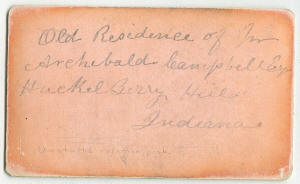 Old Residence of
Archibald Campbell Esq
Huckel berry Hills
Indiana